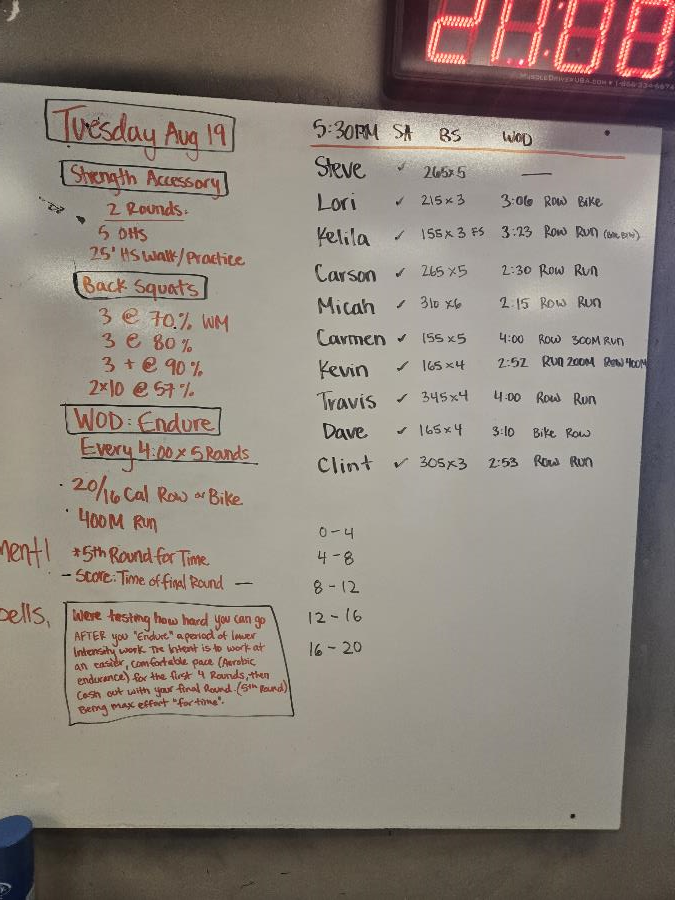 21:00
Tuesday Aug 19
Strength Accessory
2 Rounds.
5 OHS
25' HS Walk/Practice
Back Squats
3 @ 70.% WM
3 @ 80%
3 + @ 90%
2x10 @ 57%
WOD: Endure
Every 4:00 x 5 Rounds
20/16 Cal Row or Bike
400M Run
*5th Round for Time
- Score: Time of final Round -
Were testing how hard you can go
AFTER you "Endure" a period of lower
Intensity work. The Intent is to work at
an easier, comfortable pace (Aerobic
endurance) for the first 4 Rounds, then
Cash out with your final Round. (5th Round)
Being max effort "for time".
5:30PM SA BS WOD
Steve ✓ 265x5 —
Lori ✓ 215x3 3:06 Row Bike
Kelila ✓ 155x3 FS 3:23 Row Run
Carson ✓ 265x5 2:30 Row Run
Micah ✓ 310x6 2:15 Row Run
Carmen ✓ 155x5 4:00 Row 300M Run
Kevin ✓ 165x4 2:52 Run 200M Row 400M
Travis ✓ 345x4 4:00 Row Run
Dave ✓ 165x4 3:10 Bike Row
Clint ✓ 305x3 2:53 Row Run
0-4
4-8
8-12
12-16
16-20